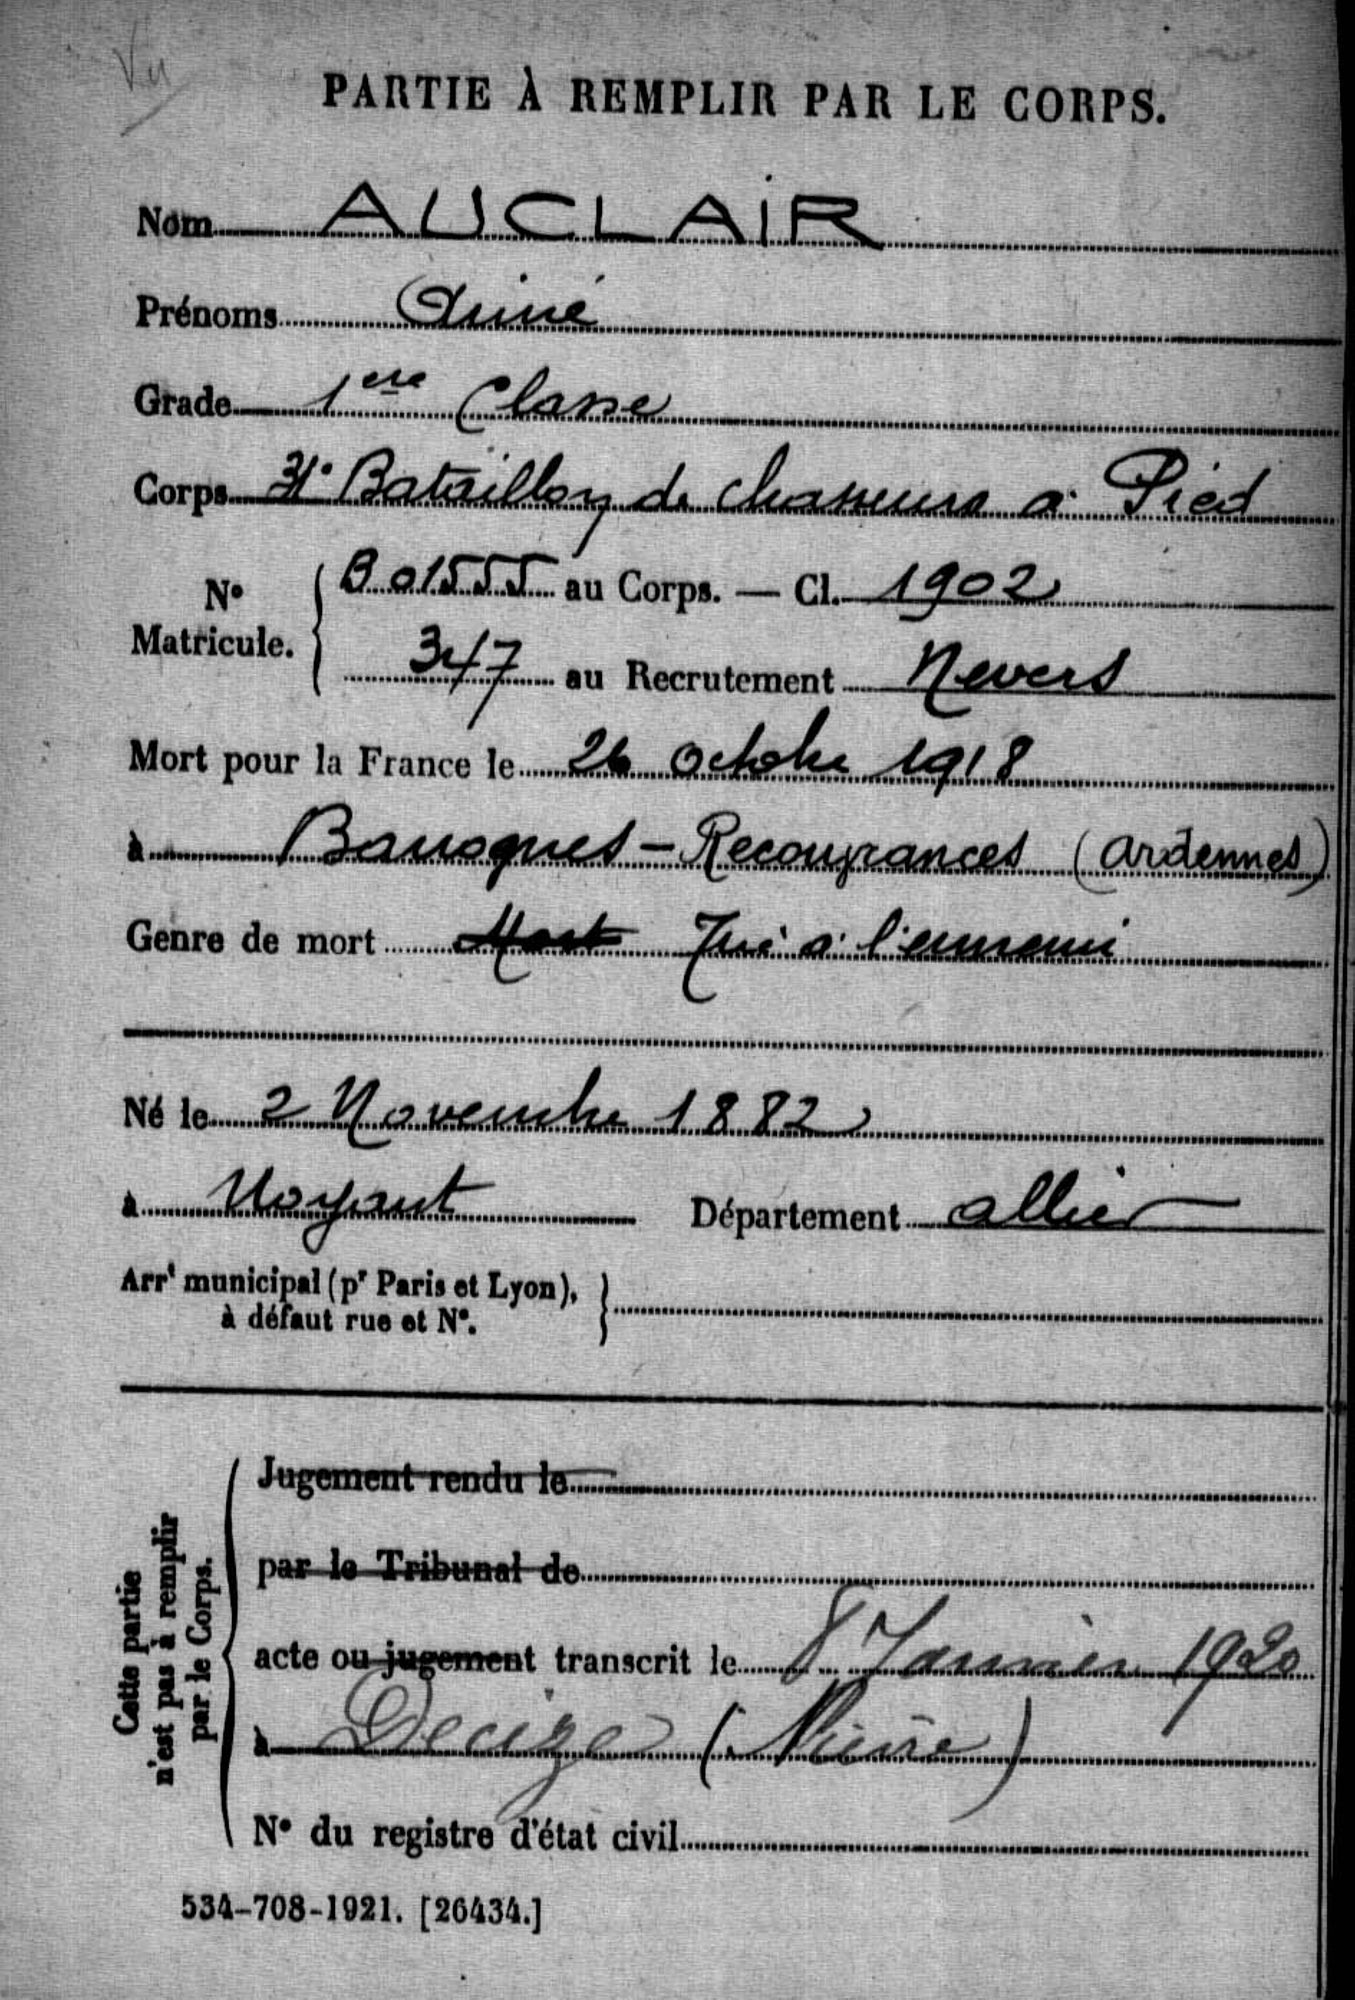 Vu
PARTIE À REMPLIR PAR LE CORPS.
Nom AUCLAIR
Prénoms Aimé
Grade 1ere Classe
Corps 31e Bataillon de chasseurs à Pied
N° Matricule. { B 01555 au Corps. — Cl. 1902
347 au Recrutement Nevers
Mort pour la France le 26 octobre 1918
à Banogues - Recouvrances (Ardennes)
Genre de mort Mort Tué à l'ennemi
Né le 2 Novembre 1882
à Noyant Département Allier
Arrt municipal (pr Paris et Lyon),
à défaut rue et N°.
Cette partie
n'est pas à remplir
par le Corps.
Jugement rendu le
par le Tribunal de
acte ou jugement transcrit le 8 Janvier 1920
à Decize (Nièvre)
N° du registre d'état civil
534-708-1921. [26434.]